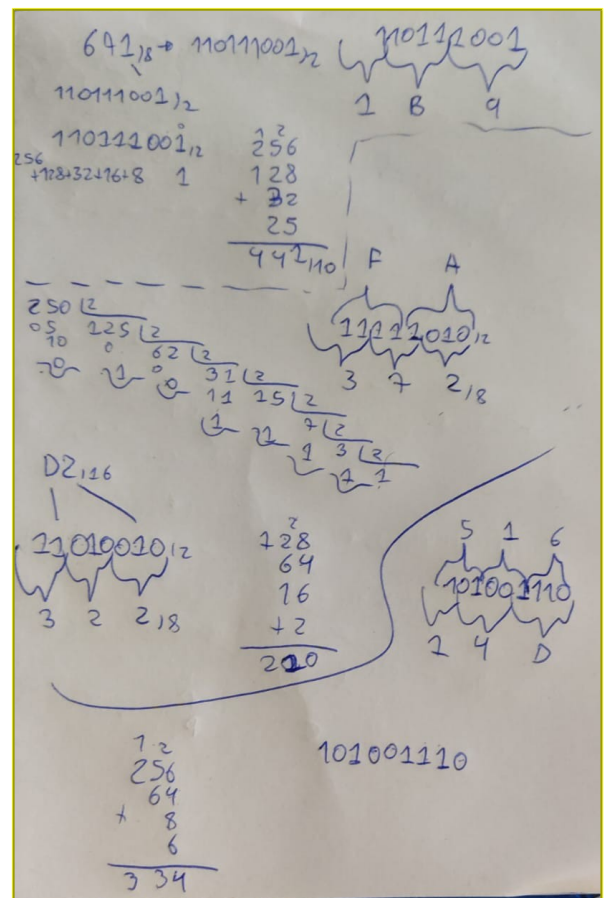 671,8 → 110111001,2
110111001
1 B 9
110111001,2
110111001,2
256
+128+32+16+8 1
1 2
256
128
+ 32
25
441,10
F A
11111010,2
3 7 2,8
250 2
05 125 2
10 0 62 2
0 1 0 31 2
0 11 15 2
1 1 7 2
1 3 2
1 1
D2,16
11010010,2
3 2 2,8
2
128
64
16
+ 2
210
5 1 6
101001110
1 4 D
1 2
256
64
+ 8
6
334
101001110